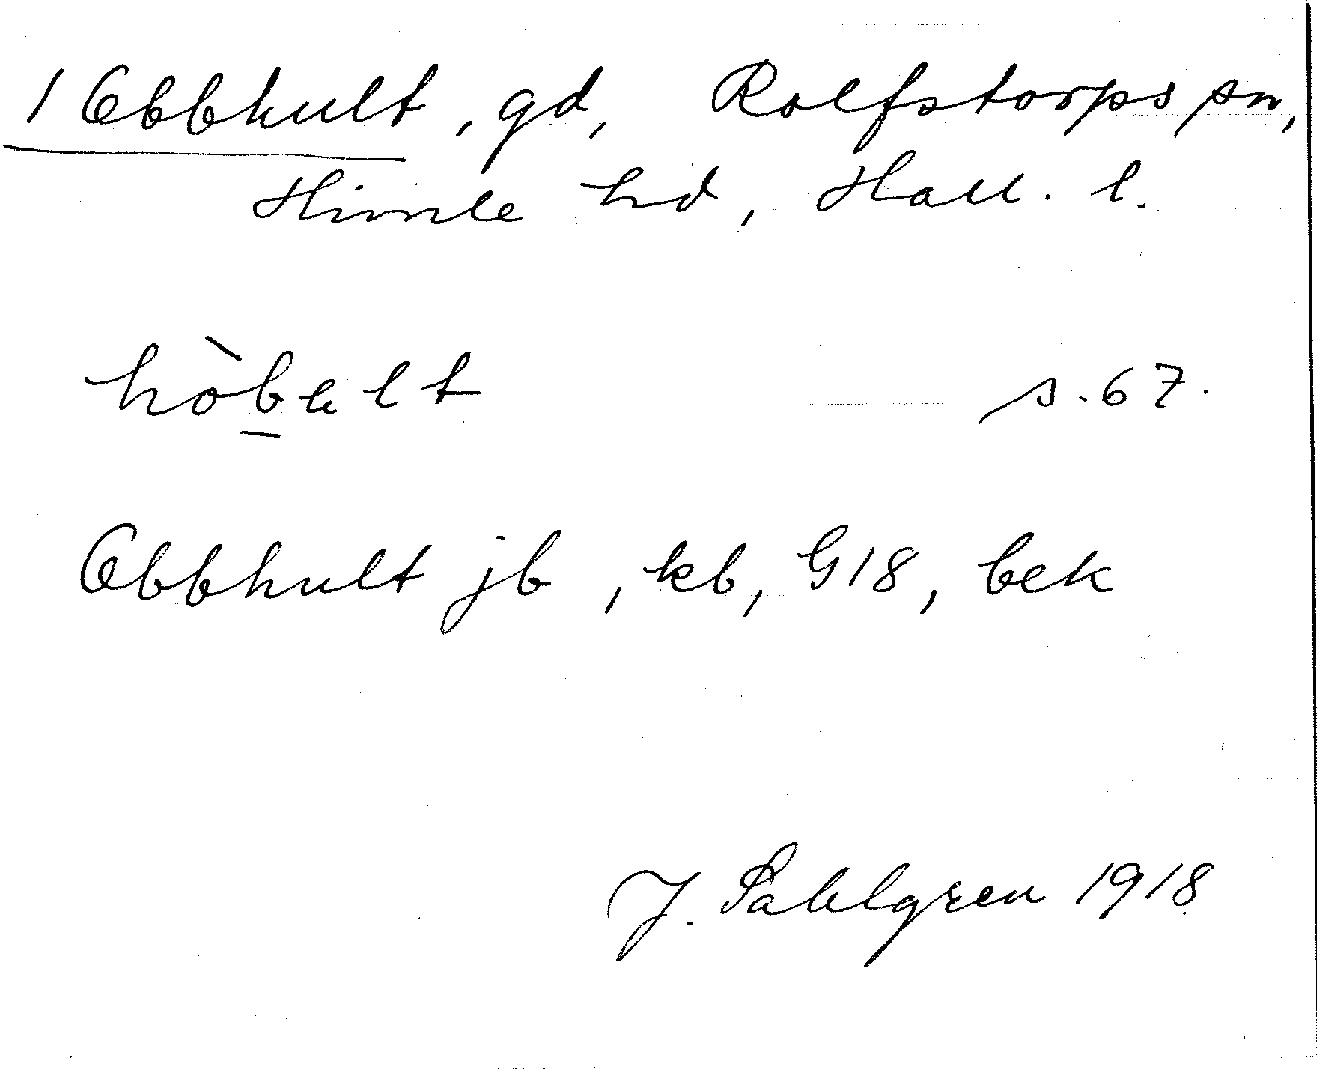 1 Obbhult, gd, Rolfstorps sn,
Himle hd, Hall. l.
hòbult s. 67.
Obbhult jb, kb, G18, bek
J. Sahlgren 1918